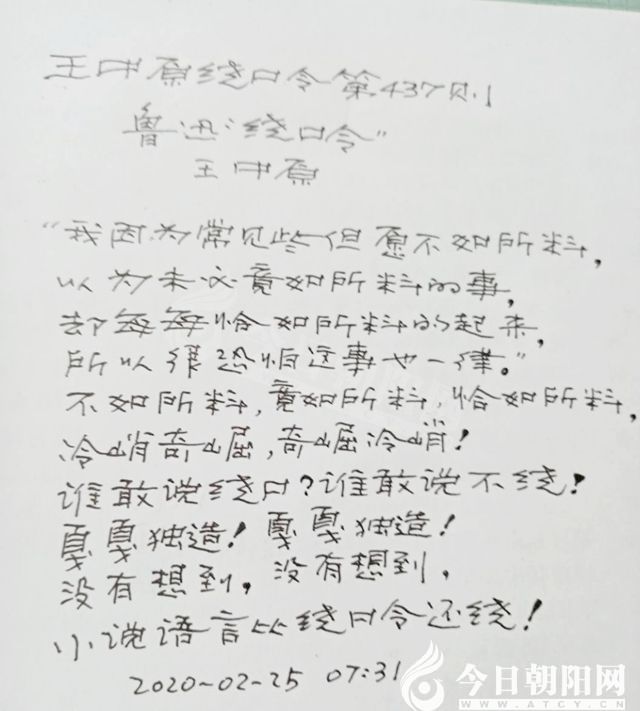 王中原绕口令第437页.1
鲁迅“绕口令”
王中原
“我因为常见些但愿不如所料,
以为未必竟如所料的事,
却每每恰如所料的起来,
所以很恐怕这事也一律。”
不如所料,竟如所料,恰如所料,
冷峭奇崛,奇崛冷峭!
谁敢说绕口?谁敢说不绕!
戛戛独造!戛戛独造!
没有想到,没有想到,
小说语言比绕口令还绕!
2020-02-25 07:31
今日朝阳网
WWW.ATCY.CN